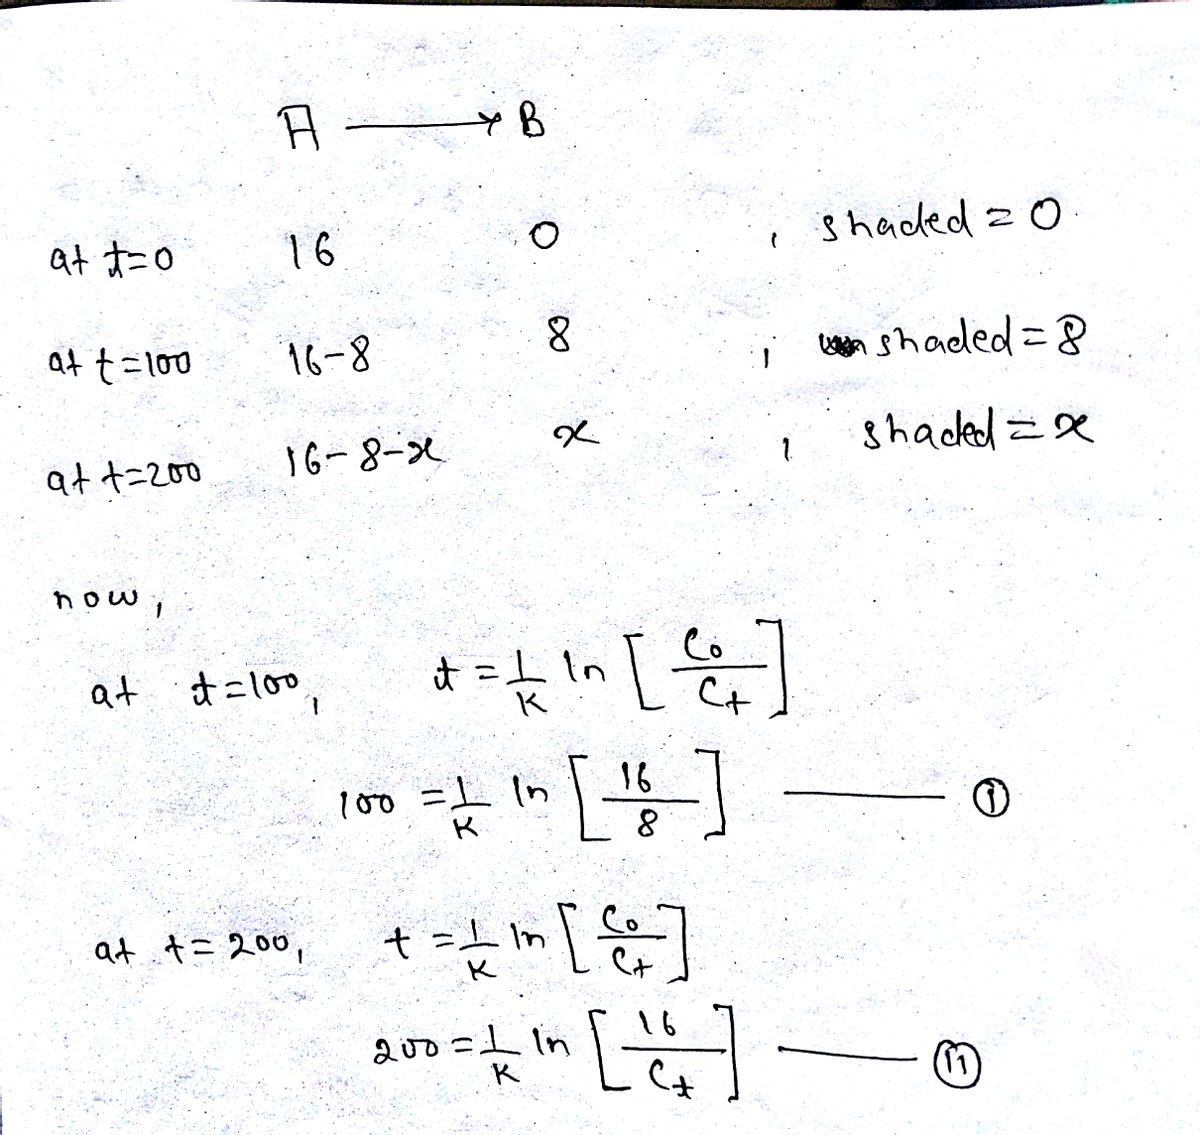 A ⟶ B
at t=0 16 0 , shaded = 0
at t=100 16-8 8 , shaded = 8
at t=200 16-8-x x , shaded = x
now,
at t=100, t = 1/K ln [C₀/Cₜ]
100 = 1/K ln [16/8] —— ①
at t=200, t = 1/K ln [C₀/Cₜ]
200 = 1/K ln [16/Cₜ] —— ⑪